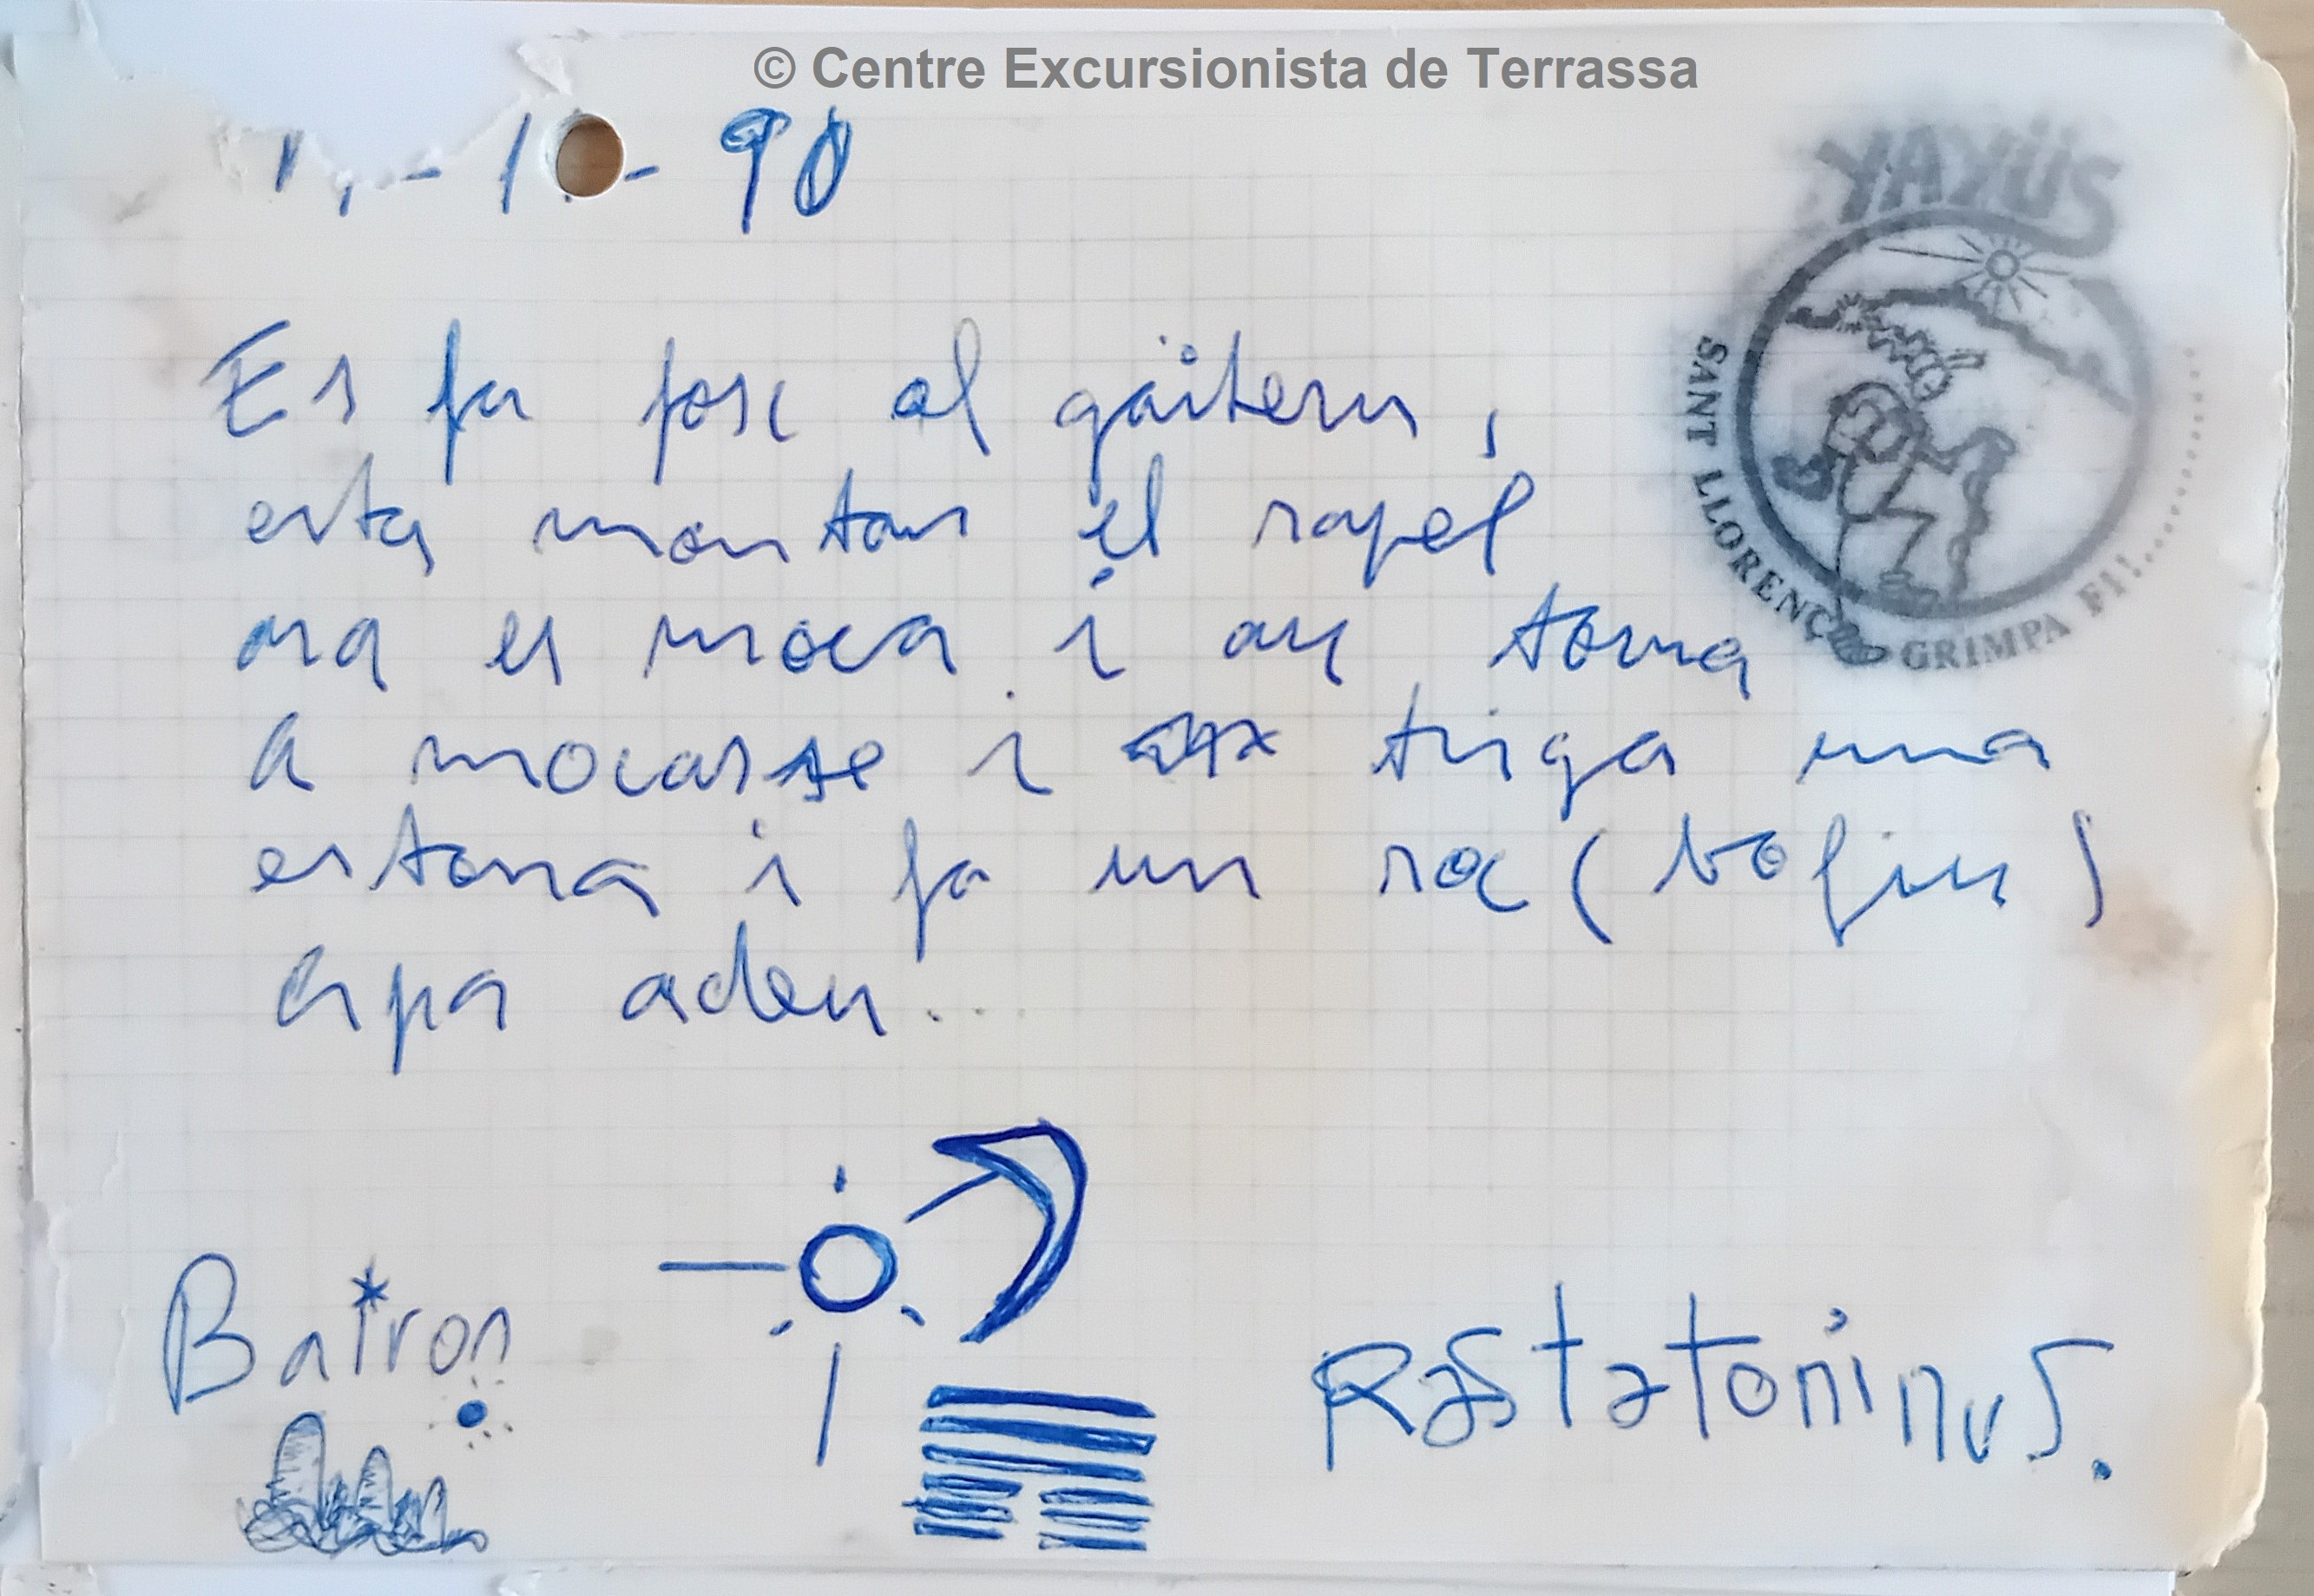 © Centre Excursionista de Terrassa
- 90
YAXÜS
SANT LLORENÇ GRIMPA FI!
Es fa fosc al
esta montan el rapel
ara es moca i torna
a mocarse i triga una
estona i fa un roc (
apa adeu...
Bairon
Rastatoninus.